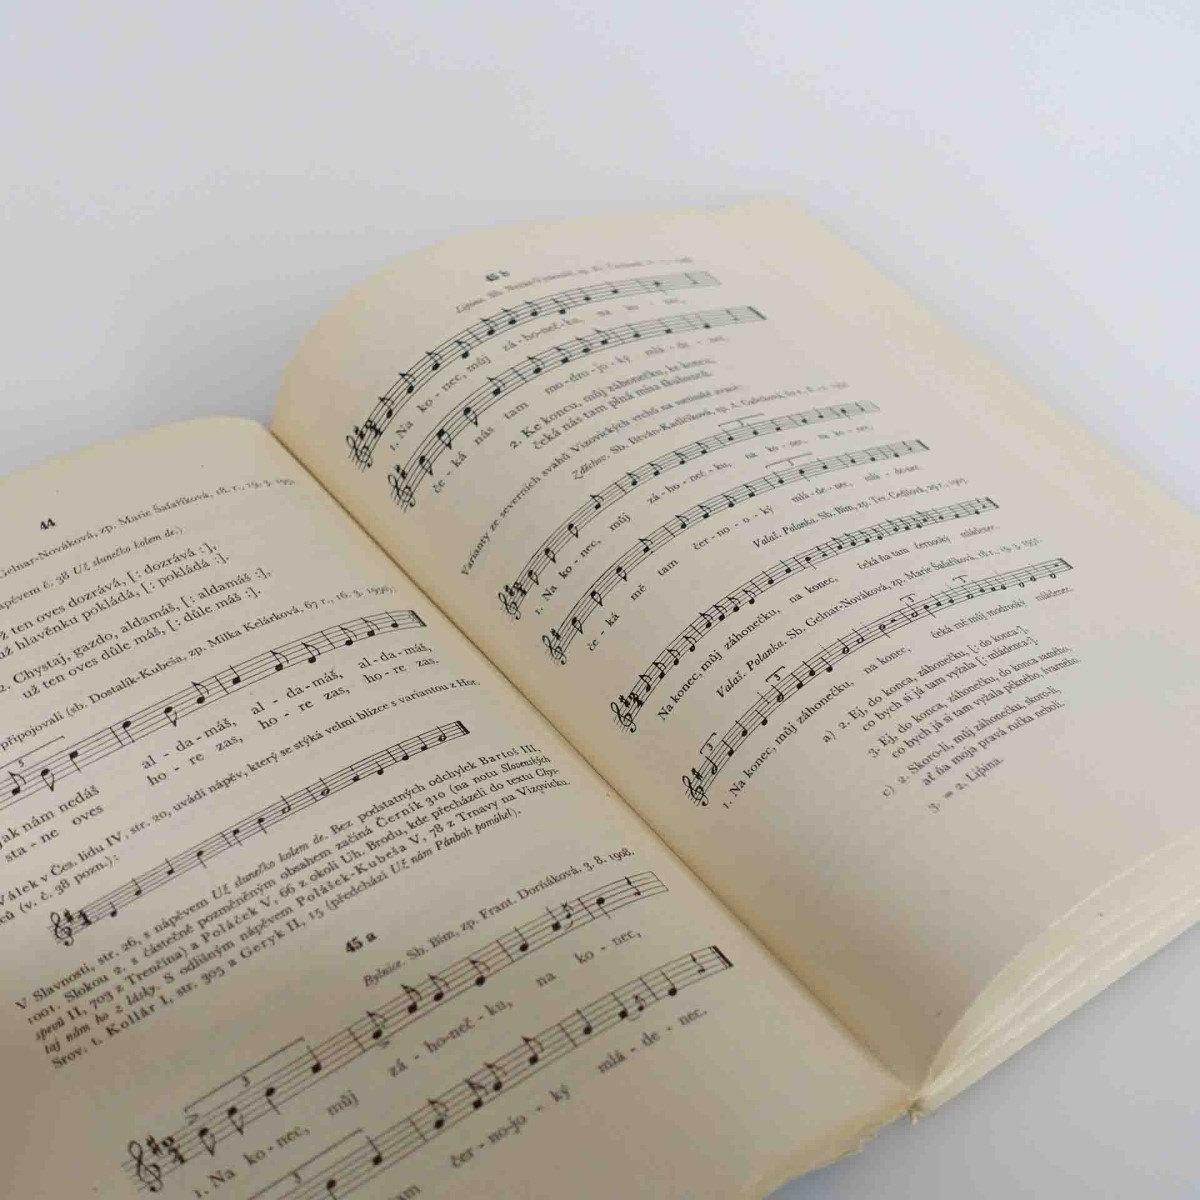 44
Gelnar-Nováková, zp. Marie Šafaříková, 18. r., 19. 3.
nápěvem č. 38 Už slunečko kolem de.)
ten oves dozrává, [: dozrává :],
už hlavěnku pokládá, [: pokládá :].
2. Chystaj, gazdo, aldamáš, [: aldamáš :],
už ten oves důle máš, [: důle máš :].
připojovali (sb. Dostalík-Kubeša, zp. Milka Kelárková, 67 r., 16. 3. 1950):
jak nám nedáš al - da - máš, al - da - máš, al - da - máš,
sta - ne oves ho - re zas, ho - re zas, ho - re zas.
Válek v Čes. lidu IV, str. 20, uvádí nápěv, který se stýká velmi blízce s variantou z Hor.
(v. č. 38 pozn.):
V Slavnosti, str. 26, s nápěvem Už slunečko kolem de. Bez podstatných odchylek Bartoš III,
1001. Slokou 2. s částečně pozměněným obsahem začíná Černík 310 (na notu Slovenských
spevů II, 703 z Trenčína) a Poláček V, 66 z okolí Uh. Brodu, kde přecházeli do textu Chys-
taj nám ho z lásky. S odlišným nápěvem Polášek-Kubeša V, 78 z Trnavy na Vizovicku.
Srov. t. Kollár I, str. 305 a Geryk II, 15 (předchází Už nám Pánboh pomáhel).
45 a
Bylnice. Sb. Bim, zp. Frant. Dorňáková, 3. 8. 1908.
1. Na ko - nec, můj zá - ho-neč - ku, na ko - nec,
tam čer - no-jo - ký mlá - de - nec.
45 b
1. Na ko - nec, můj zá - ho-neč - ku, na ko - nec,
če - ká nás tam mo-dro-jo - ký mlá - de - nec.
2. Ke koncu, můj záhonečku, ke koncu,
čeká nás tam plná mísa
Varianty ze severních svahů Vizovických vrchů na
Zděchov. Sb.
1. Na ko - nec, můj zá - ho - neč - ku, na ko - nec, na ko - nec,
če - ká mě tam čer - no - o - ký mlá - de - nec, mlá - de-nec.
Valaš. Polanka. Sb. Bim, zp. Ter.
Na konec, můj záhonečku, na konec, čeká ňa tam černooký mládenec.
Valaš. Polanka. Sb. Gelnar-Nováková, zp. Marie Šafaříková, 18 r., 19. 3. 1951.
1. Na konec, můj záhonečku, na konec, čeká mě můj modrooký mládenec.
a) 2. Ej, do konca, záhonečku, [: do konca :],
co bych si já tam vyžala [: mládenca :].
3. Ej, do konca, záhonečku, do konca samého,
co bych já si tam vyžala pěkného, švarného.
c) 2. Skoro-li, můj záhonečku, skoro-li,
ať ňa moja pravá ručka nebolí.
3. = 2. Lipina.